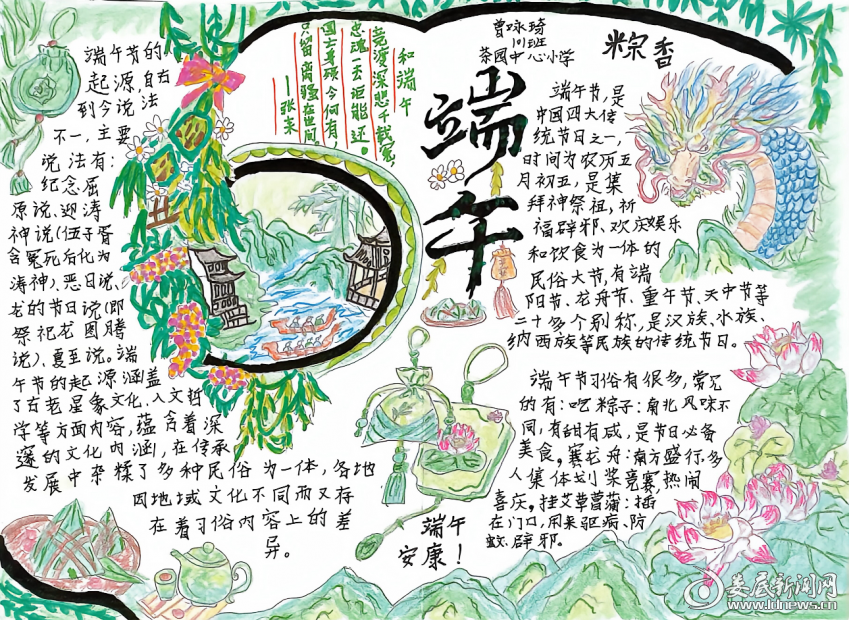 端午节的
起源,自古
到今说法
不一,主要
说法有:
纪念屈
原说、迎涛
神说(伍子胥
含冤死后化为
涛神)、恶日说、
龙的节日说(即
祭祀龙图腾
说)、夏至说。端
午节的起源涵盖
了古老星象文化、人文哲
学等方面内容,蕴含着深
邃的文化内涵,在传承
发展中杂糅了多种民俗为一体,各地
因地域文化不同而又存
在着习俗内容上的差
异。
和端午
竞渡深悲千载冤,
忠魂一去讵能还。
国亡身殒今何有,
只留离骚在世间
——张耒
曾咏琦
101班
茶园中心小学
粽香
端午
端午节,是
中国四大传
统节日之一,
时间为农历五
月初五,是集
拜神祭祖,祈
福辟邪、欢庆娱乐
和饮食为一体的
民俗大节,有端
阳节、龙舟节、重午节、天中节等
二十多个别称,是汉族、水族、
纳西族等民族的传统节日。
端午节习俗有很多,常见
的有:吃粽子:南北风味不
同,有甜有咸,是节日必备
美食。赛龙舟:南方盛行,多
人集体划桨竞赛,热闹
喜庆。挂艾草菖蒲:插
在门口,用来驱病、防
蚊、辟邪。
端午
安康!
娄底新闻网
www.ldnews.cn